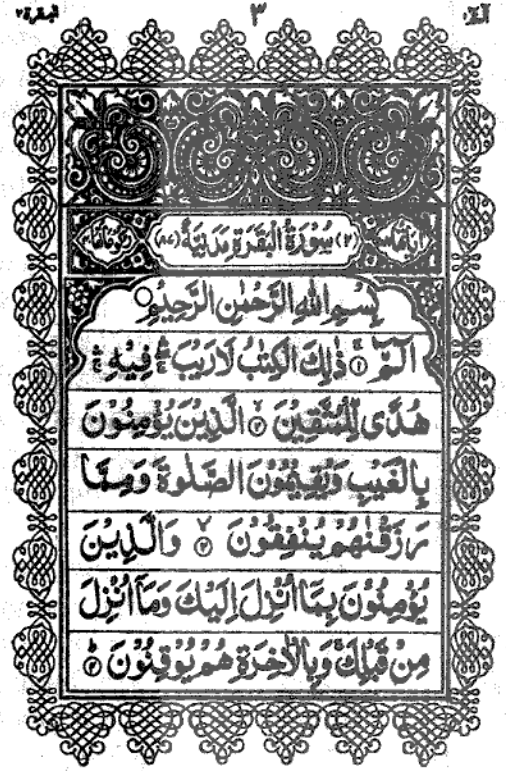 البقرة ٢
٣
الٓمّٓ ١
(٢) سُوْرَةُ الْبَقَرَةِ مَدَنِيَّةٌ (٨٧)
بِسْمِ اللهِ الرَّحْمٰنِ الرَّحِيْمِ
الٓمّٓ ۚ ١ ذٰلِكَ الْكِتٰبُ لَا رَيْبَ ۛ فِيْهِ ۛ
هُدًى لِّلْمُتَّقِيْنَ ۙ ٢ الَّذِيْنَ يُؤْمِنُوْنَ
بِالْغَيْبِ وَيُقِيْمُوْنَ الصَّلٰوةَ وَمِمَّا
رَزَقْنٰهُمْ يُنْفِقُوْنَ ۙ ٣ وَالَّذِيْنَ
يُؤْمِنُوْنَ بِمَآ اُنْزِلَ اِلَيْكَ وَمَآ اُنْزِلَ
مِنْ قَبْلِكَ ۚ وَبِالْاٰخِرَةِ هُمْ يُوْقِنُوْنَ ۗ ٤